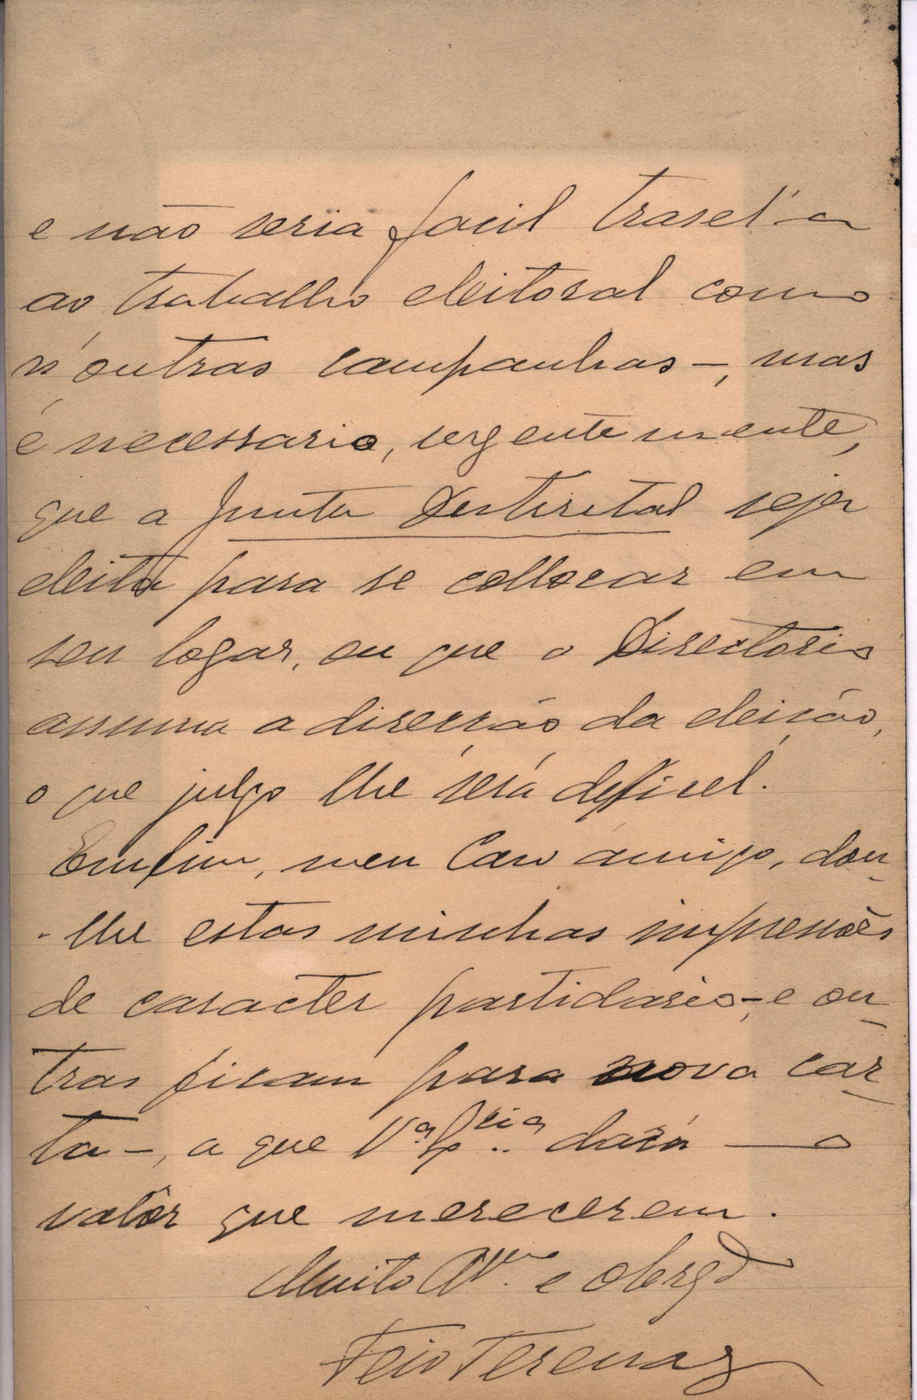 e não seria facil trasel'a
ao trabalho eleitoral como
n'outras campanhas –, mas
é necessario, urgentemente,
que a Junta Destirital seja
eleita para se collocar em
seu logar, ou que o Directorio
assuma a direcção da eleição,
o que julgo lhe será deficel.
Emfim, meu Caro amigo, dou-
-lhe estas minhas impressões
de caracter partidario –, e ou-
tras ficam para nova car-
ta –, a que V.ª Ex.cia dará – o
valôr que merecerem.
Muito Att.º e obrgd
Feio Terenas